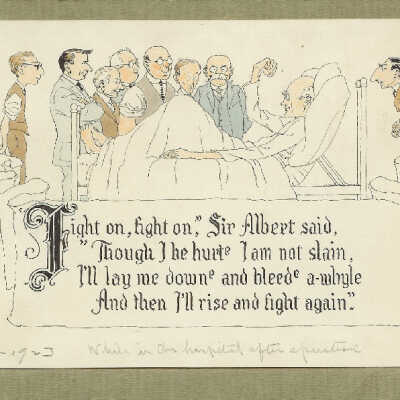 Fight on, fight on," Sir Albert said,
"Though I be hurte I am not slain,
I'll lay me downe and bleede a-whyle
And then I'll rise and fight again."
1923 While in the hospital after operation